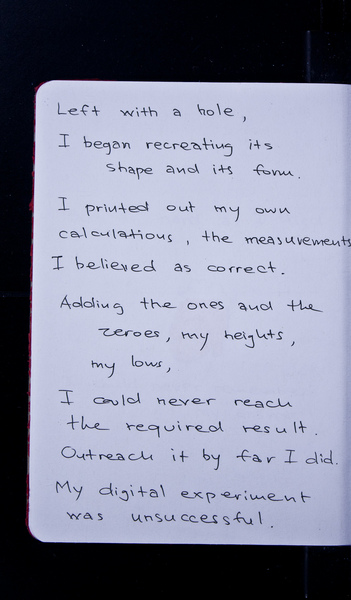 Left with a hole,
I began recreating its
shape and its form.
I printed out my own
calculations, the measurements
I believed as correct.
Adding the ones and the
zeroes, my heights,
my lows,
I could never reach
the required result.
Outreach it by far I did.
My digital experiment
was unsuccessful.